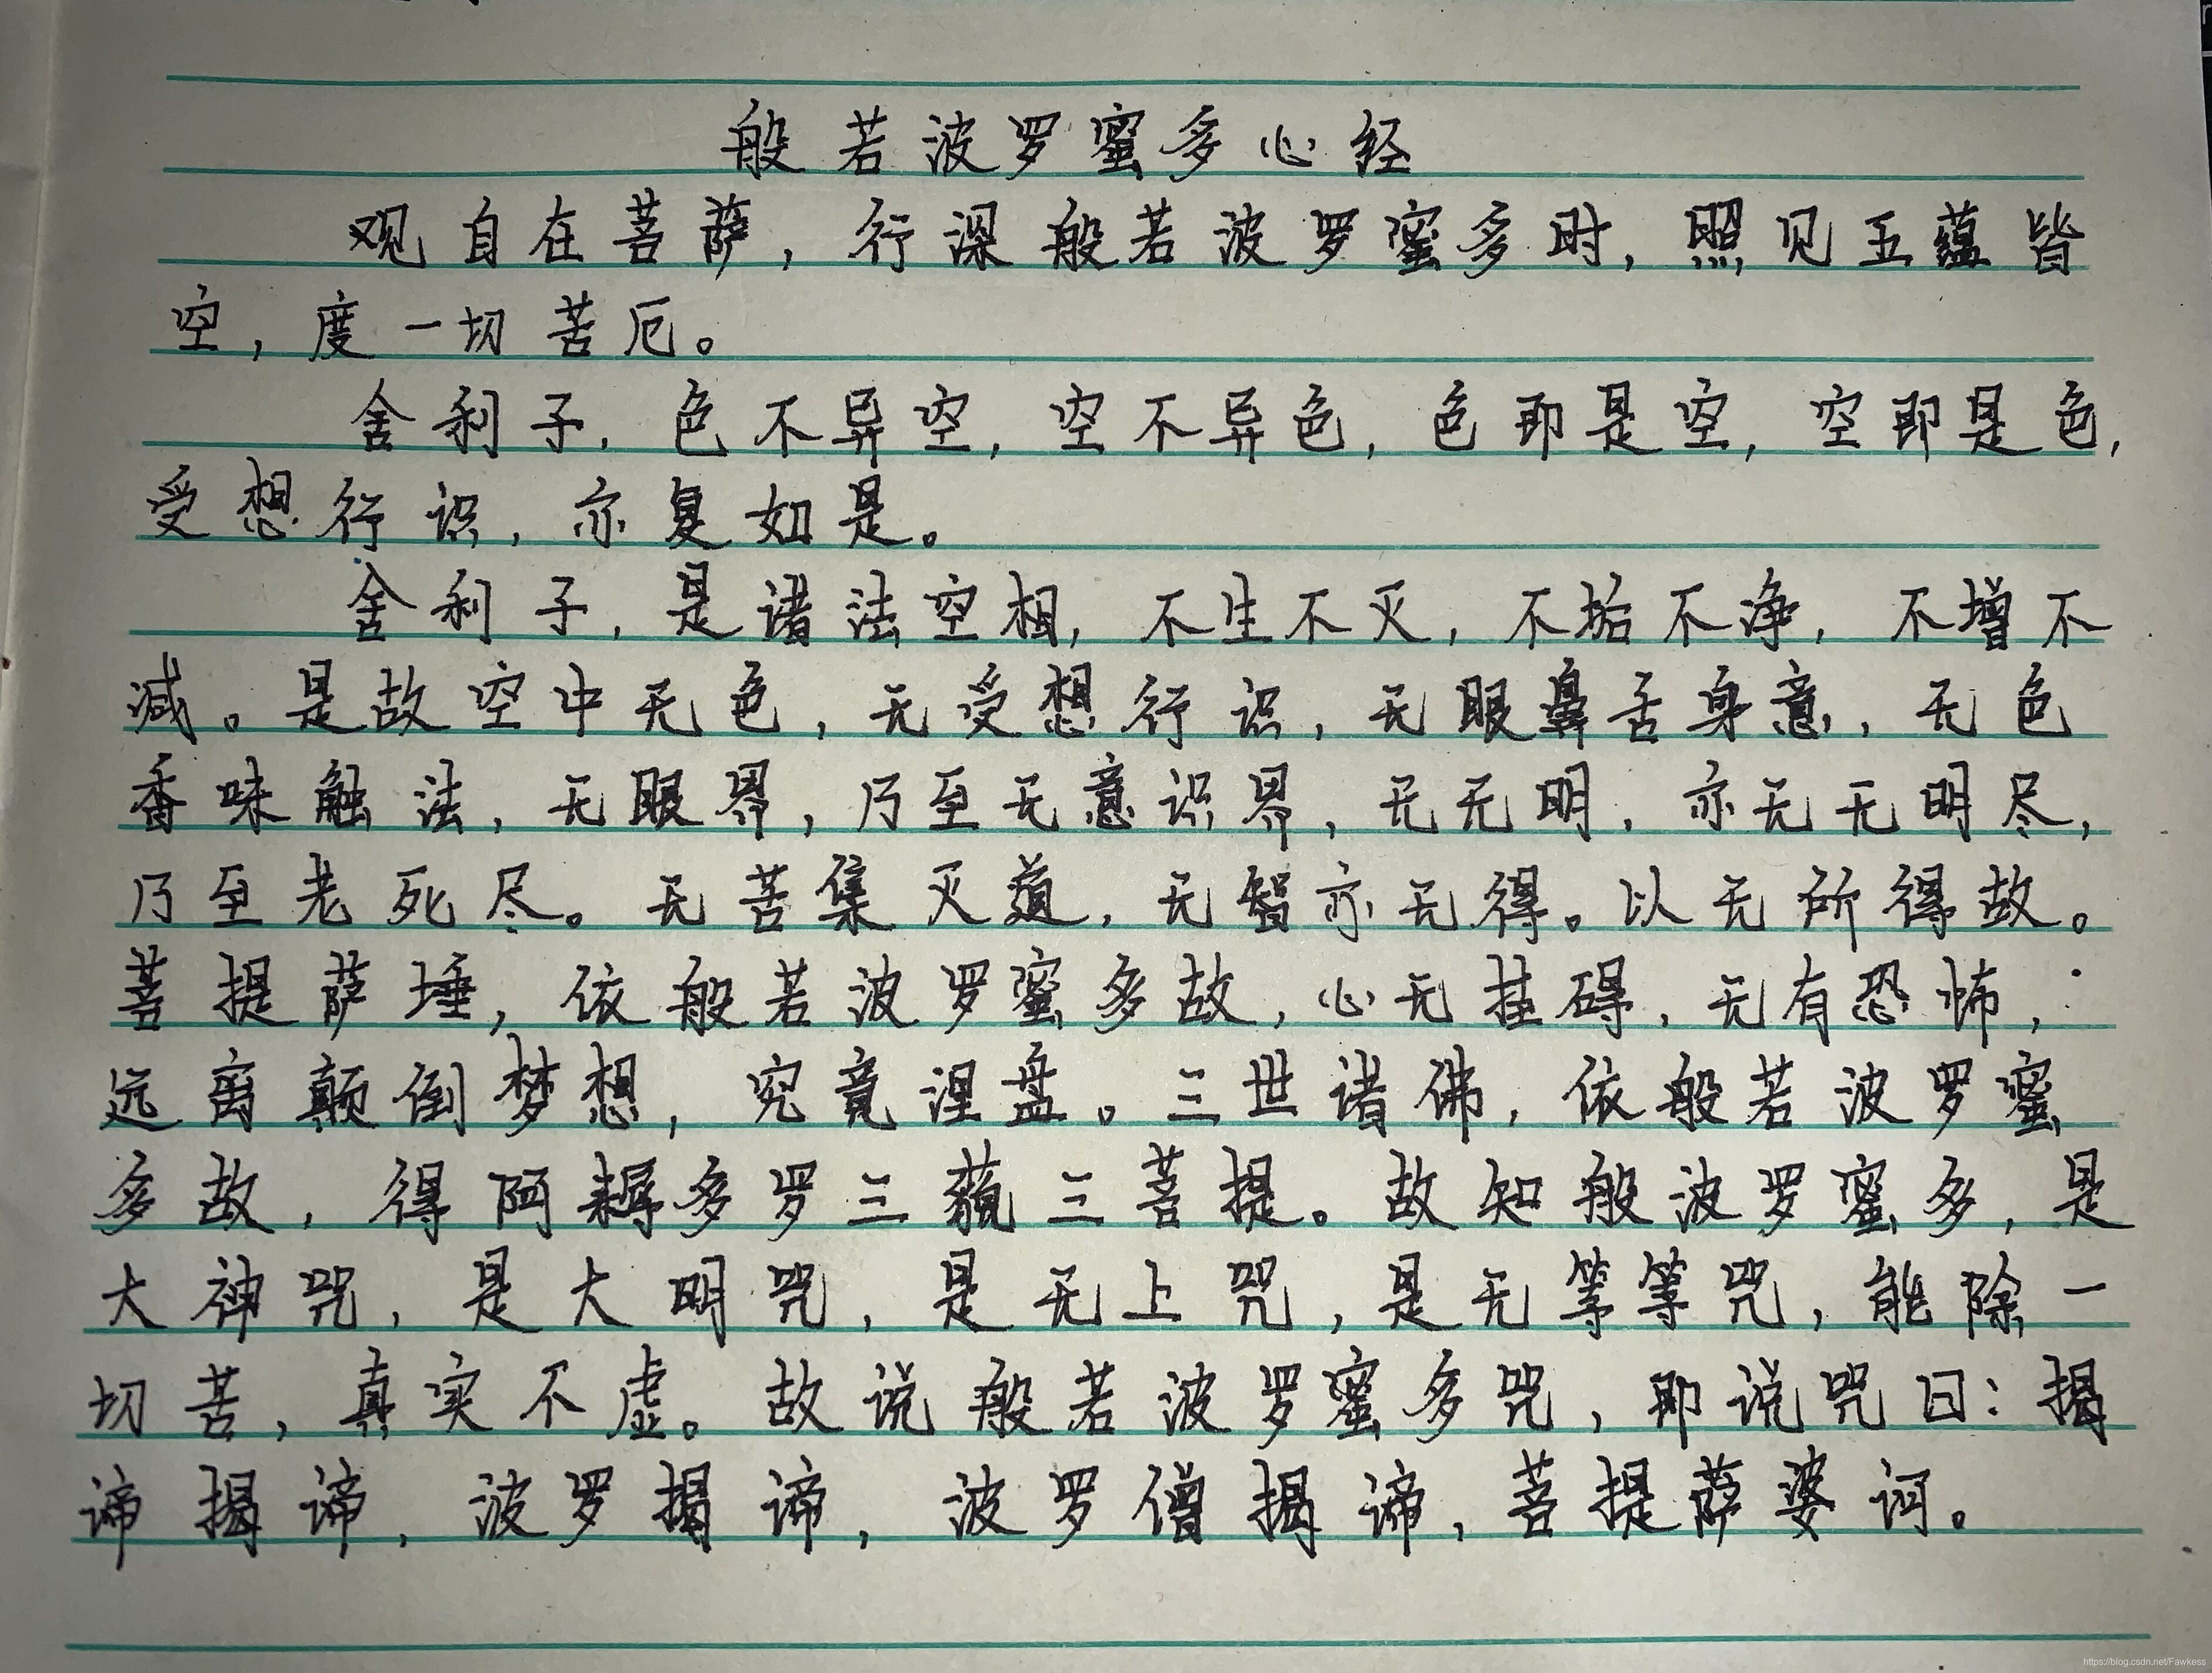 般若波罗蜜多心经
观自在菩萨，行深般若波罗蜜多时，照见五蕴皆
空，度一切苦厄。
舍利子，色不异空，空不异色，色即是空，空即是色，
受想行识，亦复如是。
舍利子，是诸法空相，不生不灭，不垢不净，不增不
减。是故空中无色，无受想行识，无眼鼻舌身意，无色
香味触法，无眼界，乃至无意识界，无无明，亦无无明尽，
乃至老死尽。无苦集灭道，无智亦无得。以无所得故。
菩提萨埵，依般若波罗蜜多故，心无挂碍，无有恐怖，
远离颠倒梦想，究竟涅盘。三世诸佛，依般若波罗蜜
多故，得阿耨多罗三藐三菩提。故知般波罗蜜多，是
大神咒，是大明咒，是无上咒，是无等等咒，能除一
切苦，真实不虚。故说般若波罗蜜多咒，即说咒曰：揭
谛揭谛，波罗揭谛，波罗僧揭谛，菩提萨婆诃。
https://blog.csdn.net/Fawkess